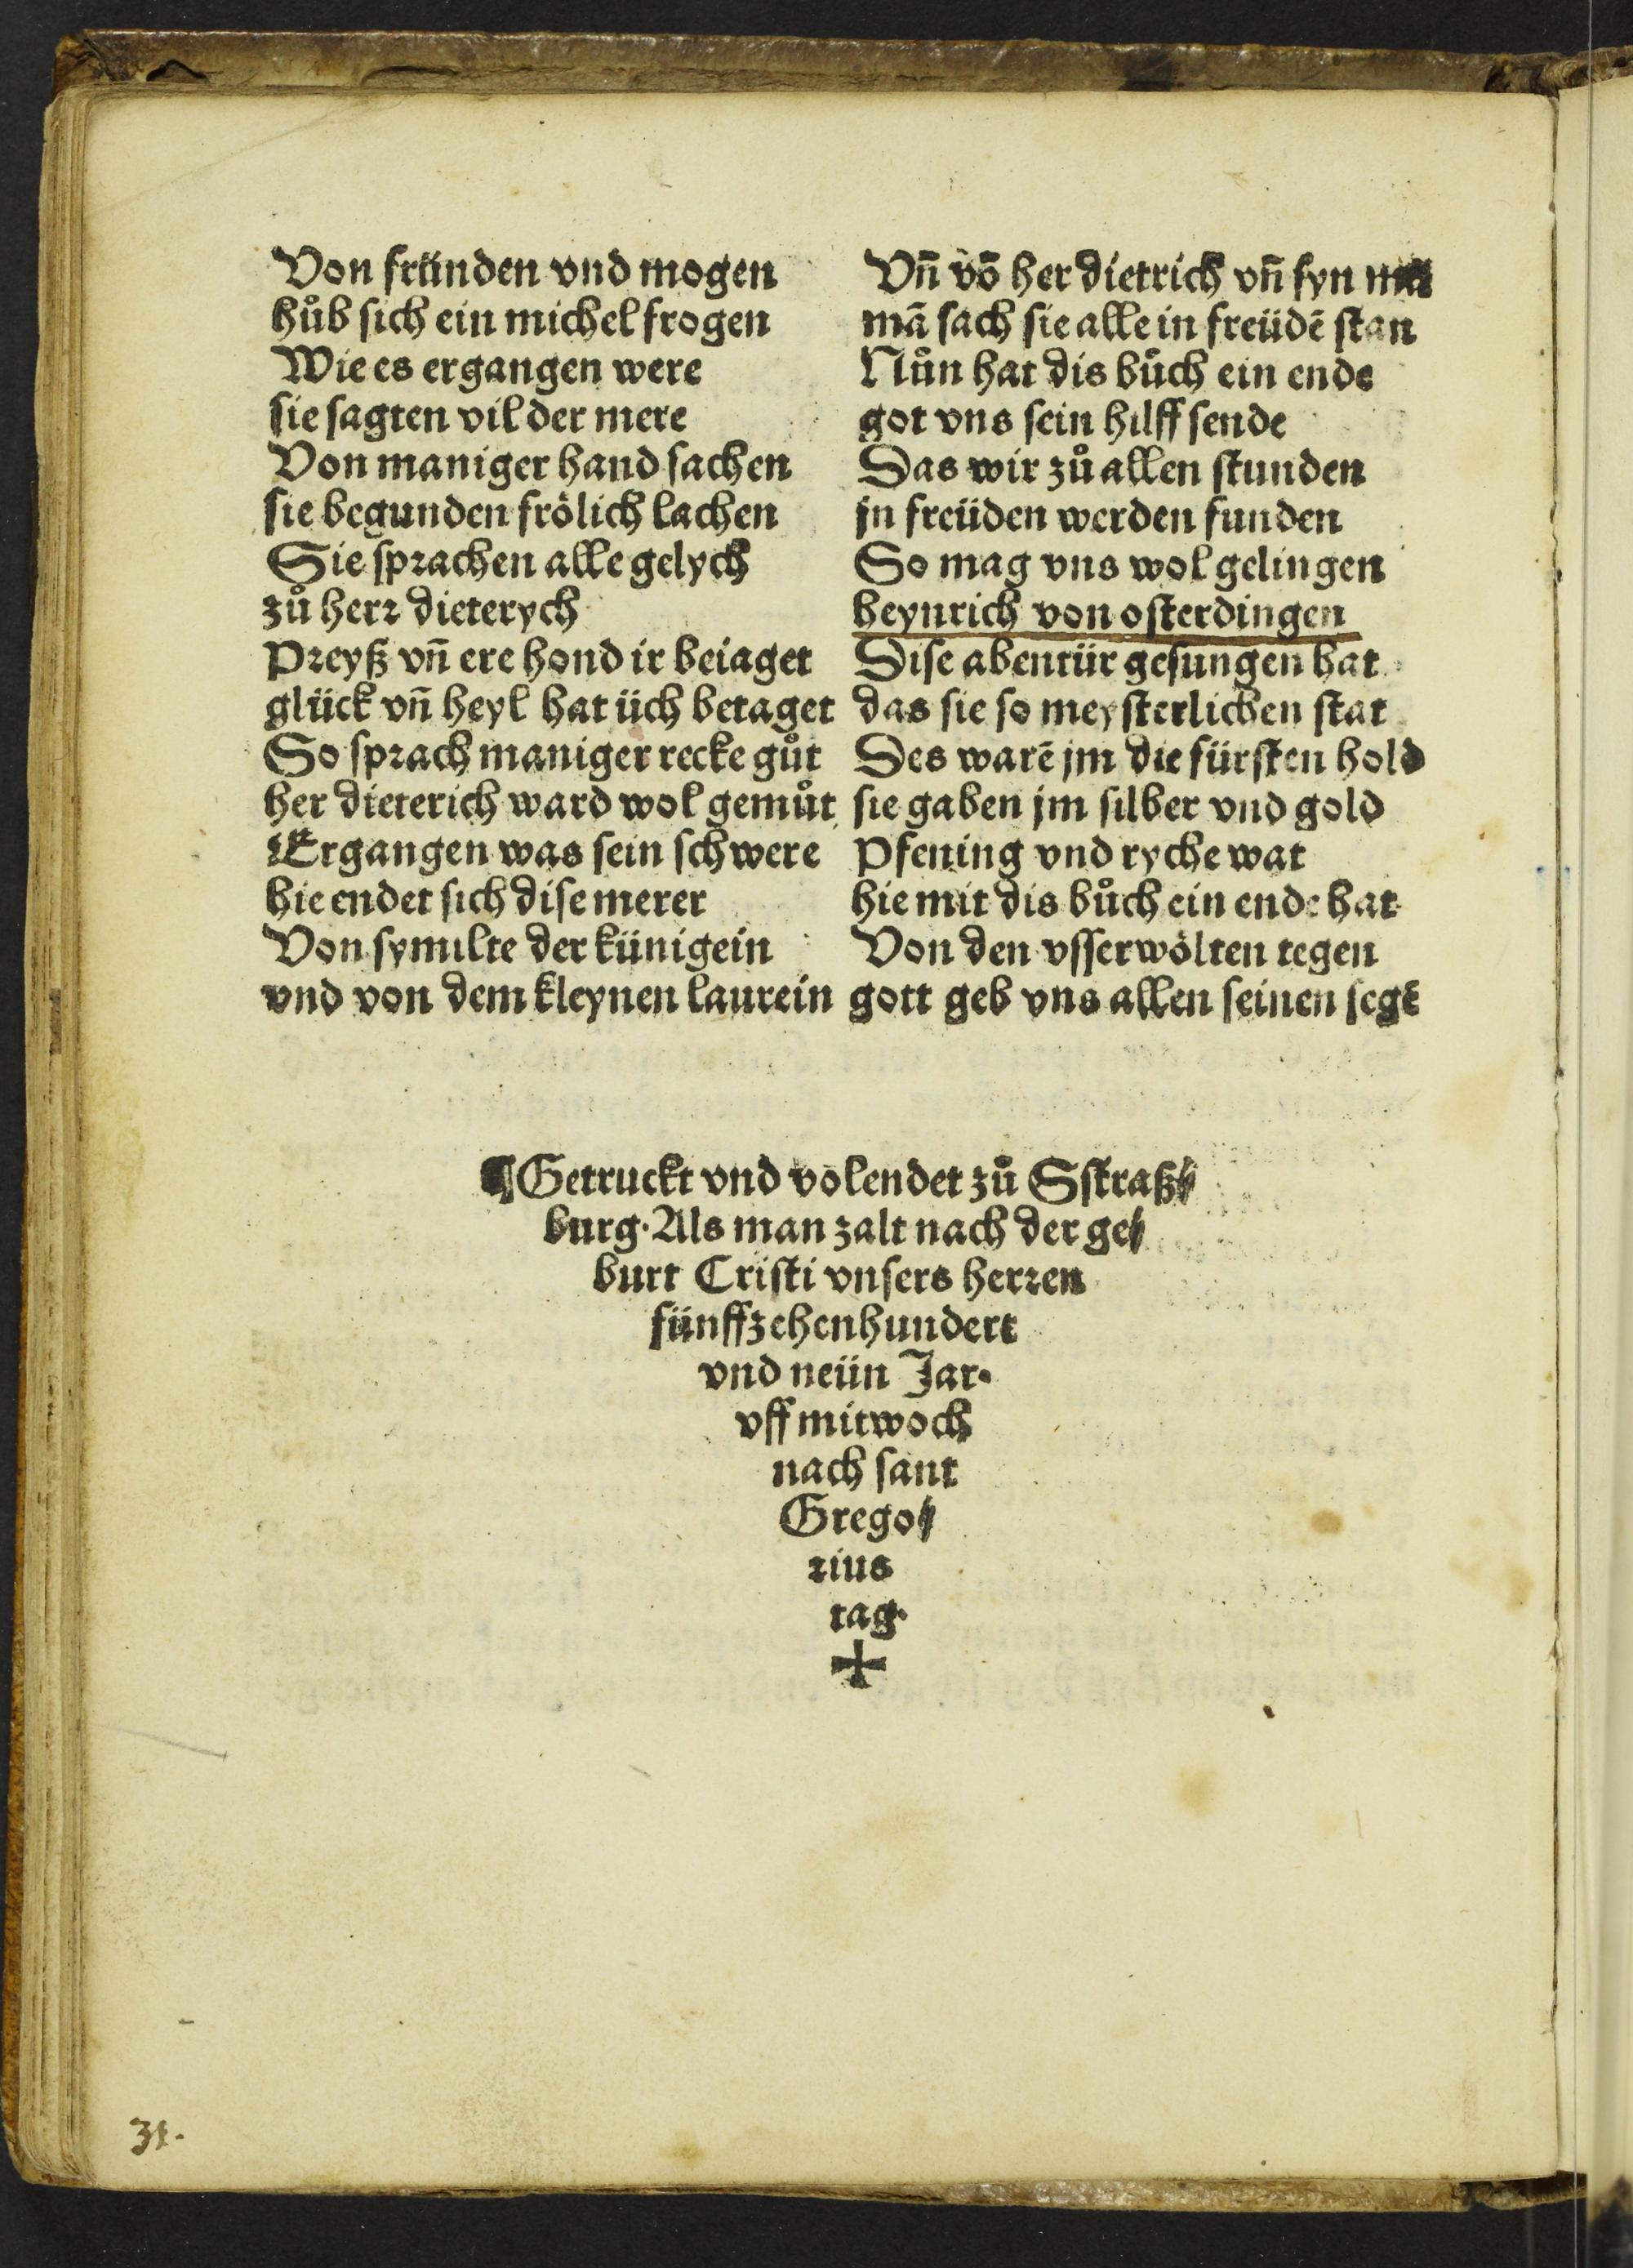 Von fründen vnd mogen
hůb sich ein michel frogen
Wie es ergangen were
sie sagten vil der mere
Von maniger hand sachen
sie begunden frölich lachen
Sie sprachen alle gelych
zů herr dieterych
Preyß vn̄ ere hond ir beiaget
glück vn̄ heyl hat üch betaget
So sprach maniger recke gůt
her dieterich ward wol gemůt
Ergangen was sein schwere
hie endet sich dise merer
Von symilte der künigein
vnd von dem kleynen laurein
Vn̄ vō her dietrich vn̄ syn
mā sach sie alle in freüdē stan
Nůn hat dis bůch ein ende
got vns sein hilff sende
Das wir zů allen stunden
jn freüden werden funden
So mag vns wol gelingen
heynrich von osterdingen
Dise abentür gesungen hat
das sie so meysterlichen stat
Des warē jm die fürsten hold
sie gaben jm silber vnd gold
Pfening vnd ryche wat
hie mit dis bůch ein ende hat
Von den vsserwölten tegen
gott geb vns allen seinen segē
¶Getruckt vnd volendet zů Sstraß⸗
burg. Als man zalt nach der ge⸗
burt Cristi vnsers herren
fünffzehenhundert
vnd neün Jar.
vff mitwoch
nach sant
Grego⸗
rius
tag.
✠
31.